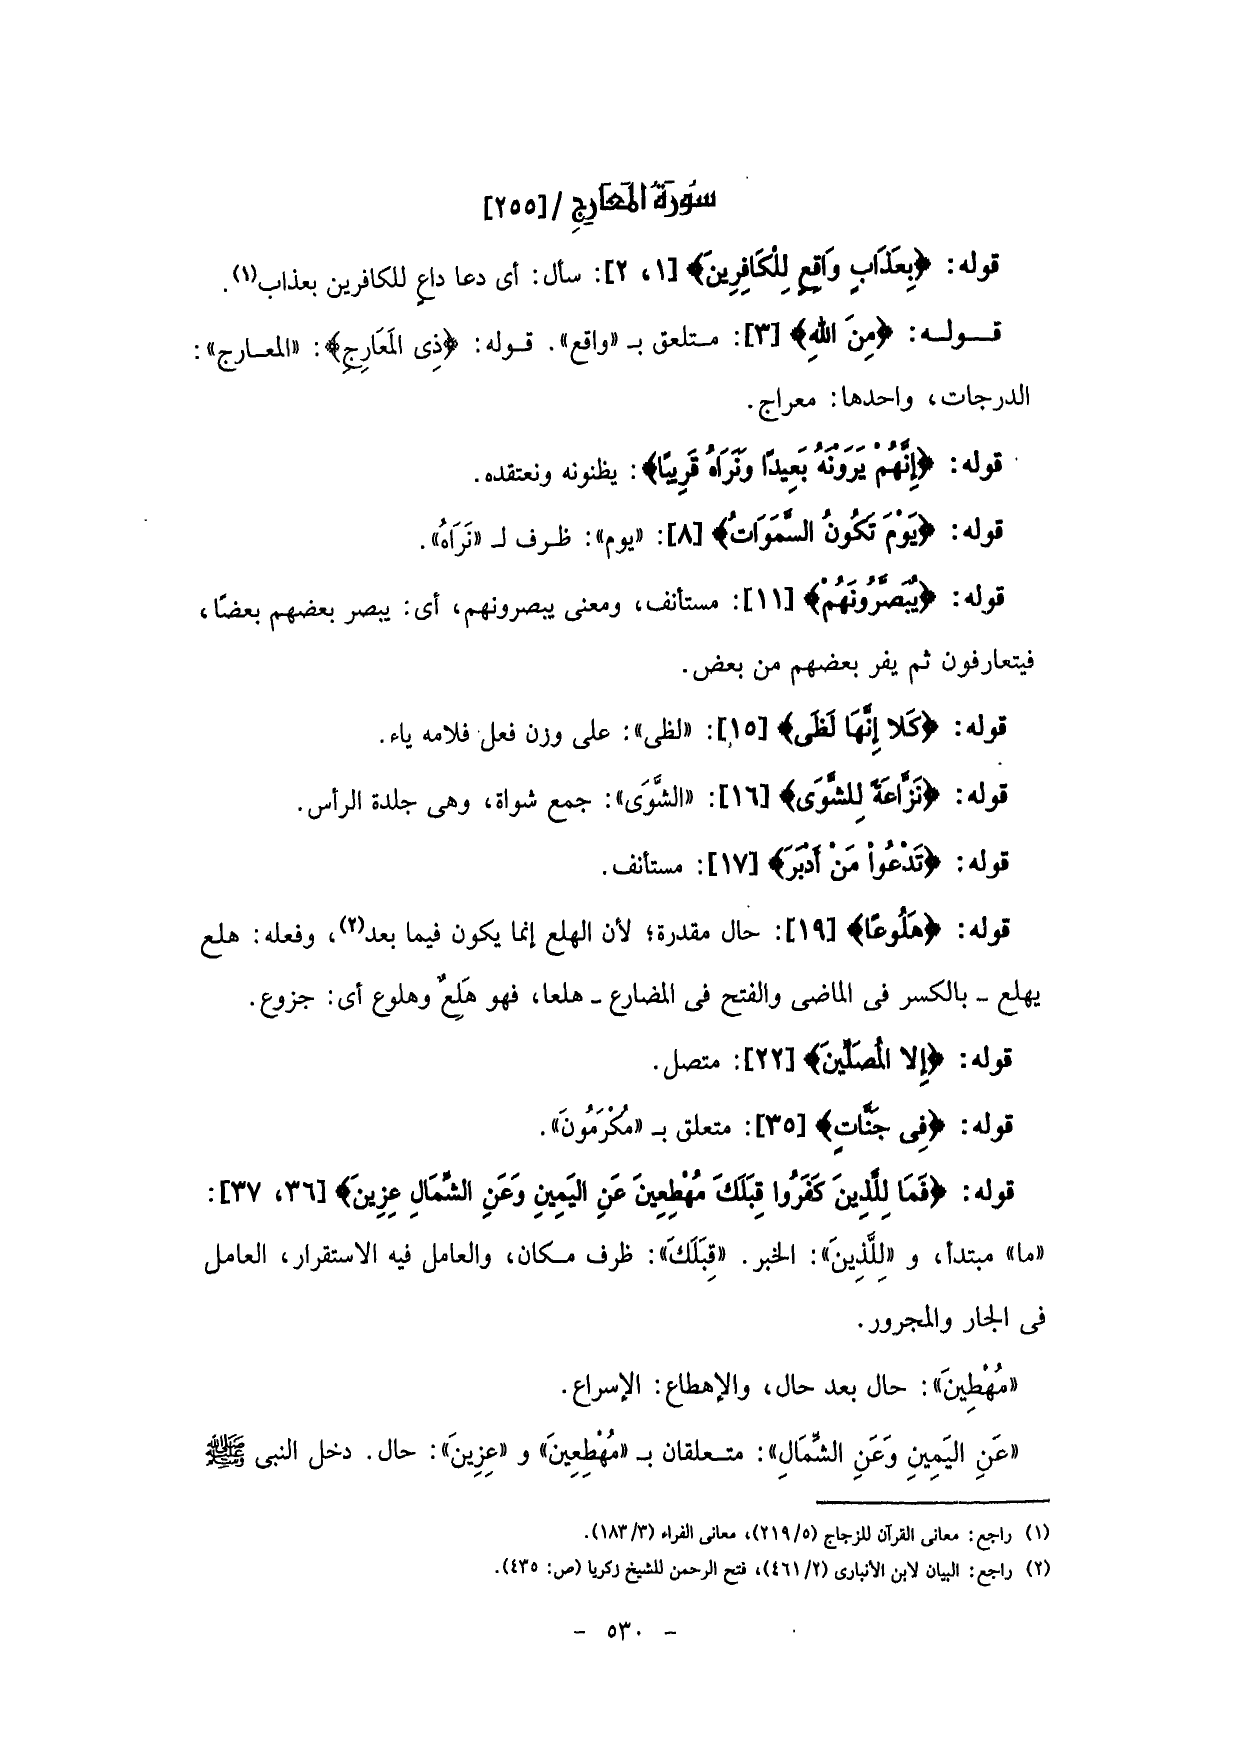 سُورَة المَعَارِجِ / [٢٥٥]
قوله: ﴿بِعَذَابٍ وَاقِعٍ لِلْكَافِرِينَ﴾ [١، ٢]: سأل: أى دعا داعٍ للكافرين بعذاب(١).
قــولــه: ﴿مِنَ اللهِ﴾ [٣]: متلعق بـ «واقع». قـوله: ﴿ذِى المَعَارِجِ﴾: «المعـارج»:
الدرجات، واحدها: معراج.
قوله: ﴿إِنَّهُمْ يَرَوْنَهُ بَعِيدًا وَنَرَاهُ قَرِيبًا﴾: يظنونه ونعتقده.
قوله: ﴿يَوْمَ تَكُونُ السَّمَوَاتُ﴾ [٨]: «يوم»: ظـرف لـ «نَرَاهُ».
قوله: ﴿يُبَصَّرُونَهُمْ﴾ [١١]: مستأنف، ومعنى يبصرونهم، أى: يبصر بعضهم بعضًا،
فيتعارفون ثم يفر بعضهم من بعض.
قوله: ﴿كَلا إِنَّهَا لَظَى﴾ [١٥]: «لظى»: على وزن فعل فلامه ياء.
قوله: ﴿نَزَّاعَةً لِلشَّوَى﴾ [١٦]: «الشَّوَى»: جمع شواة، وهى جلدة الرأس.
قوله: ﴿تَدْعُواْ مَنْ أَدْبَرَ﴾ [١٧]: مستأنف.
قوله: ﴿هَلُوعًا﴾ [١٩]: حال مقدرة؛ لأن الهلع إنما يكون فيما بعد(٢)، وفعله: هلع
يهلع ـ بالكسر فى الماضى والفتح فى المضارع ـ هلعا، فهو هَلِعٌ وهلوع أى: جزوع.
قوله: ﴿إِلا المُصَلِّينَ﴾ [٢٢]: متصل.
قوله: ﴿فِى جَنَّاتٍ﴾ [٣٥]: متعلق بـ «مُكْرَمُونَ».
قوله: ﴿فَمَا لِلَّذِينَ كَفَرُوا قِبَلَكَ مُهْطِعِينَ عَنِ اليَمِينِ وَعَنِ الشِّمَالِ عِزِينَ﴾ [٣٦، ٣٧]:
«ما» مبتدأ، و «لِلَّذِينَ»: الخبر. «قِبَلَكَ»: ظرف مـكان، والعامل فيه الاستقرار، العامل
فى الجار والمجرور.
«مُهْطِينَ»: حال بعد حال، والإهطاع: الإسراع.
«عَنِ اليَمِينِ وَعَنِ الشِّمَالِ»: متـعلقان بـ «مُهْطِعِينَ» و «عِزِينَ»: حال. دخل النبى ﷺ
(١) راجع: معانى القرآن للزجاج (٢١٩/٥)، معانى الفراء (١٨٣/٣).
(٢) راجع: البيان لابن الأنبارى (٤٦١/٢)، فتح الرحمن للشيخ زكريا (ص: ٤٣٥).
- ٥٣٠ -